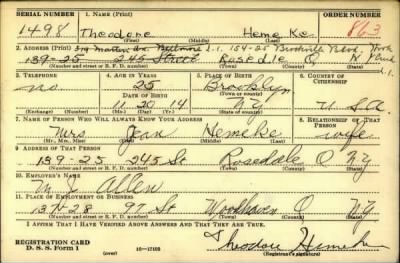 SERIAL NUMBER 1. NAME (Print) ORDER NUMBER
1498 Theodore Hemeke 863
(First) (Middle) (Last)
2. ADDRESS (Print)
139-25 245 Street Rosedale Q N
(Number and street or R. F. D. number) (Town) (County) (State)
3. TELEPHONE 4. AGE IN YEARS 5. PLACE OF BIRTH 6. COUNTRY OF CITIZENSHIP
no 25 Brooklyn
DATE OF BIRTH (Town or county)
11 20 14 N.Y. U.S.A.
(Exchange) (Number) (Mo.) (Day) (Yr.) (State or country)
7. NAME OF PERSON WHO WILL ALWAYS KNOW YOUR ADDRESS 8. RELATIONSHIP OF THAT PERSON
Mrs Jean Hemeke wife
(Mr., Mrs., Miss) (First) (Middle) (Last)
9. ADDRESS OF THAT PERSON
139-25 245 St Rosedale Q NY
(Number and street or R. F. D. number) (Town) (County) (State)
10. EMPLOYER'S NAME
M. J. Allen
11. PLACE OF EMPLOYMENT OR BUSINESS
28 97 St Woodhaven Q NY
(Number and street or R. F. D. number) (Town) (County) (State)
I AFFIRM THAT I HAVE VERIFIED ABOVE ANSWERS AND THAT THEY ARE TRUE.
REGISTRATION CARD
D. S. S. Form 1 (over) Theodore Hemeke
(Registrant's signature)